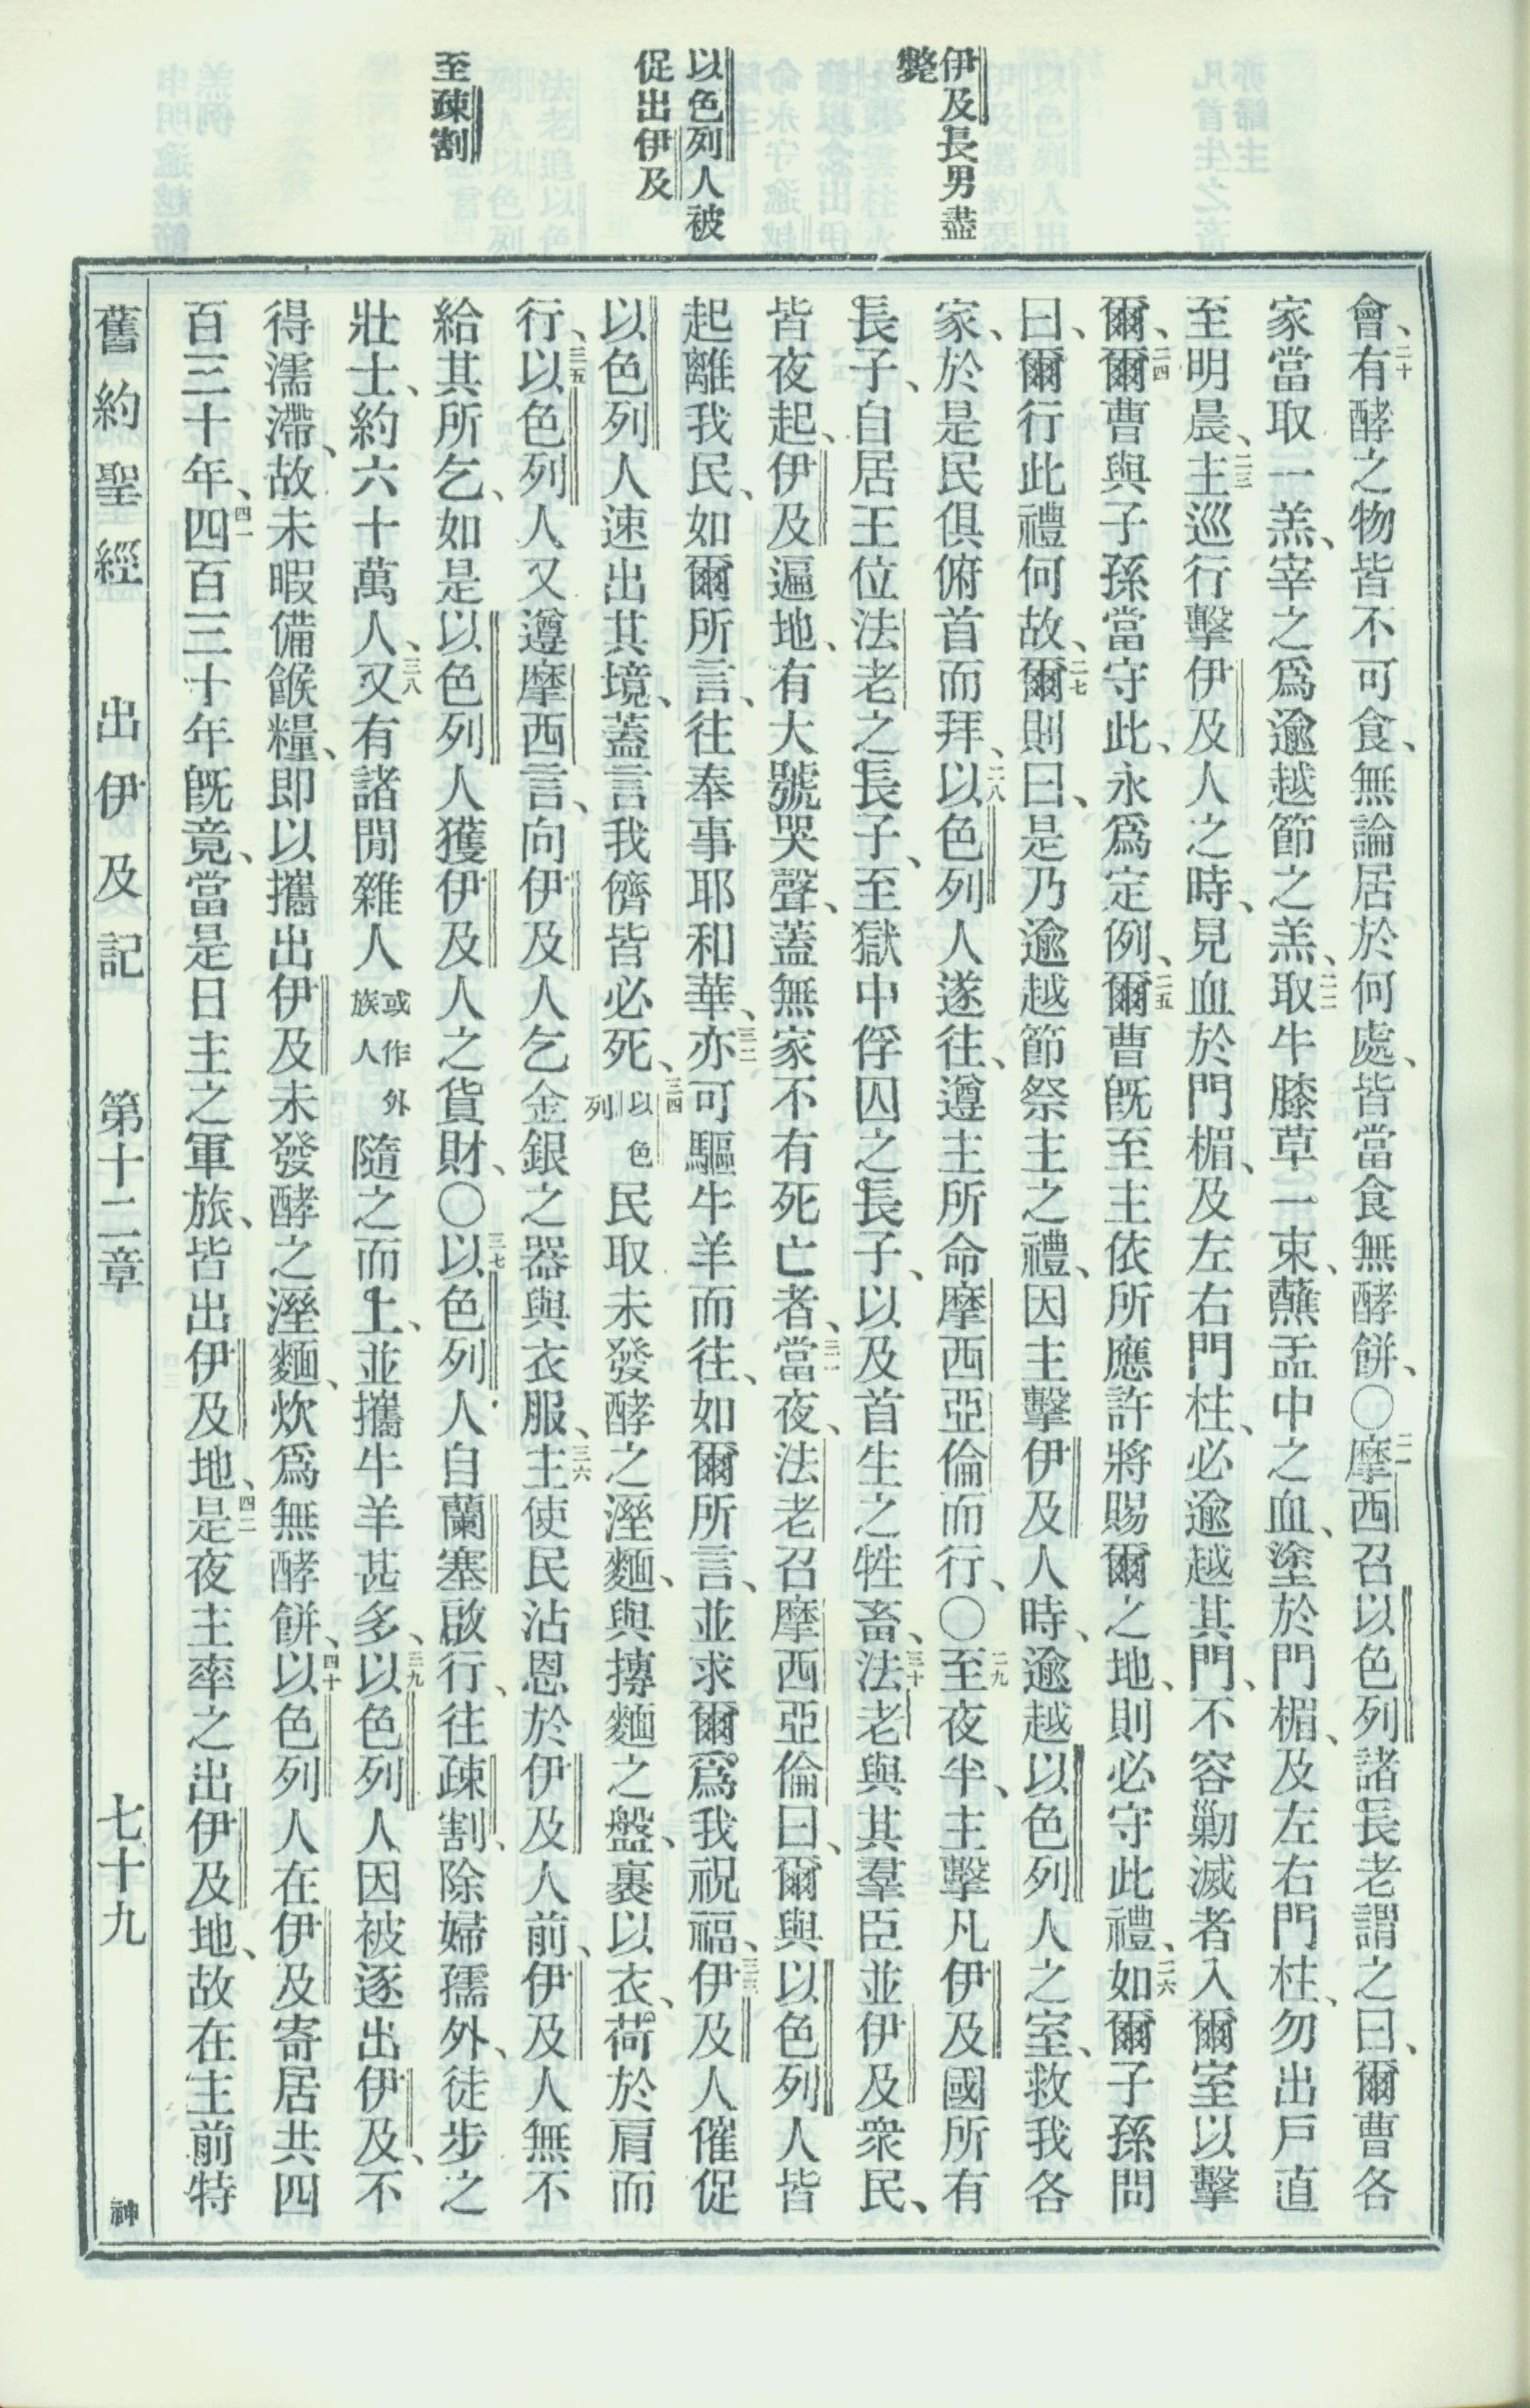 伊及長男盡
斃
以色列人被
促出伊及
至疎割
會、二十有酵之物皆不可食、無論居於何處、皆當食無酵餅、〇二一摩西召以色列諸長老謂之曰、爾曹各
家當取一羔、宰之爲逾越節之羔、二二取牛膝草一束、蘸盂中之血、塗於門楣、及左右門柱、勿出戶直
至明晨、二三主巡行擊伊及人之時、見血於門楣、及左右門柱、必逾越其門、不容勦滅者入爾室以擊
爾、二四爾曹與子孫當守此、永爲定例、二五爾曹旣至主依所應許將賜爾之地、則必守此禮、二六如爾子孫問
曰、爾行此禮何故、二七爾則曰、是乃逾越節祭主之禮、因主擊伊及人時、逾越以色列人之室、救我各
家、於是民俱俯首而拜、二八以色列人遂往、遵主所命摩西亞倫而行、〇二九至夜半、主擊凡伊及國所有
長子、自居王位法老之長子、至獄中俘囚之長子、以及首生之牲畜、三十法老與其羣臣並伊及衆民、
皆夜起、伊及遍地、有大號哭聲、蓋無家不有死亡者、三一當夜、法老召摩西亞倫曰、爾與以色列人皆
起離我民、如爾所言、往奉事耶和華、三二亦可驅牛羊而往、如爾所言、並求爾爲我祝福、三三伊及人催促
以色列人速出其境、蓋言我儕皆必死、三四以色列民取未發酵之溼麵、與摶麵之盤、裹以衣、荷於肩而
行、三五以色列人又遵摩西言、向伊及人乞金銀之器與衣服、三六主使民沾恩於伊及人前、伊及人無不
給其所乞、如是以色列人獲伊及人之貨財、〇三七以色列人自蘭塞啟行、往疎割、除婦孺外、徒步之
壯士、約六十萬人、三八又有諸閒雜人或作外族人隨之而上、並攜牛羊甚多、三九以色列人因被逐出伊及、不
得濡滯、故未暇備餱糧、即以攜出伊及未發酵之溼麵、炊爲無酵餅、四十以色列人在伊及寄居共四
百三十年、四一四百三十年旣竟、當是日主之軍旅、皆出伊及地、四二是夜主率之出伊及地、故在主前特
舊約聖經　出伊及記　第十二章　七十九　神